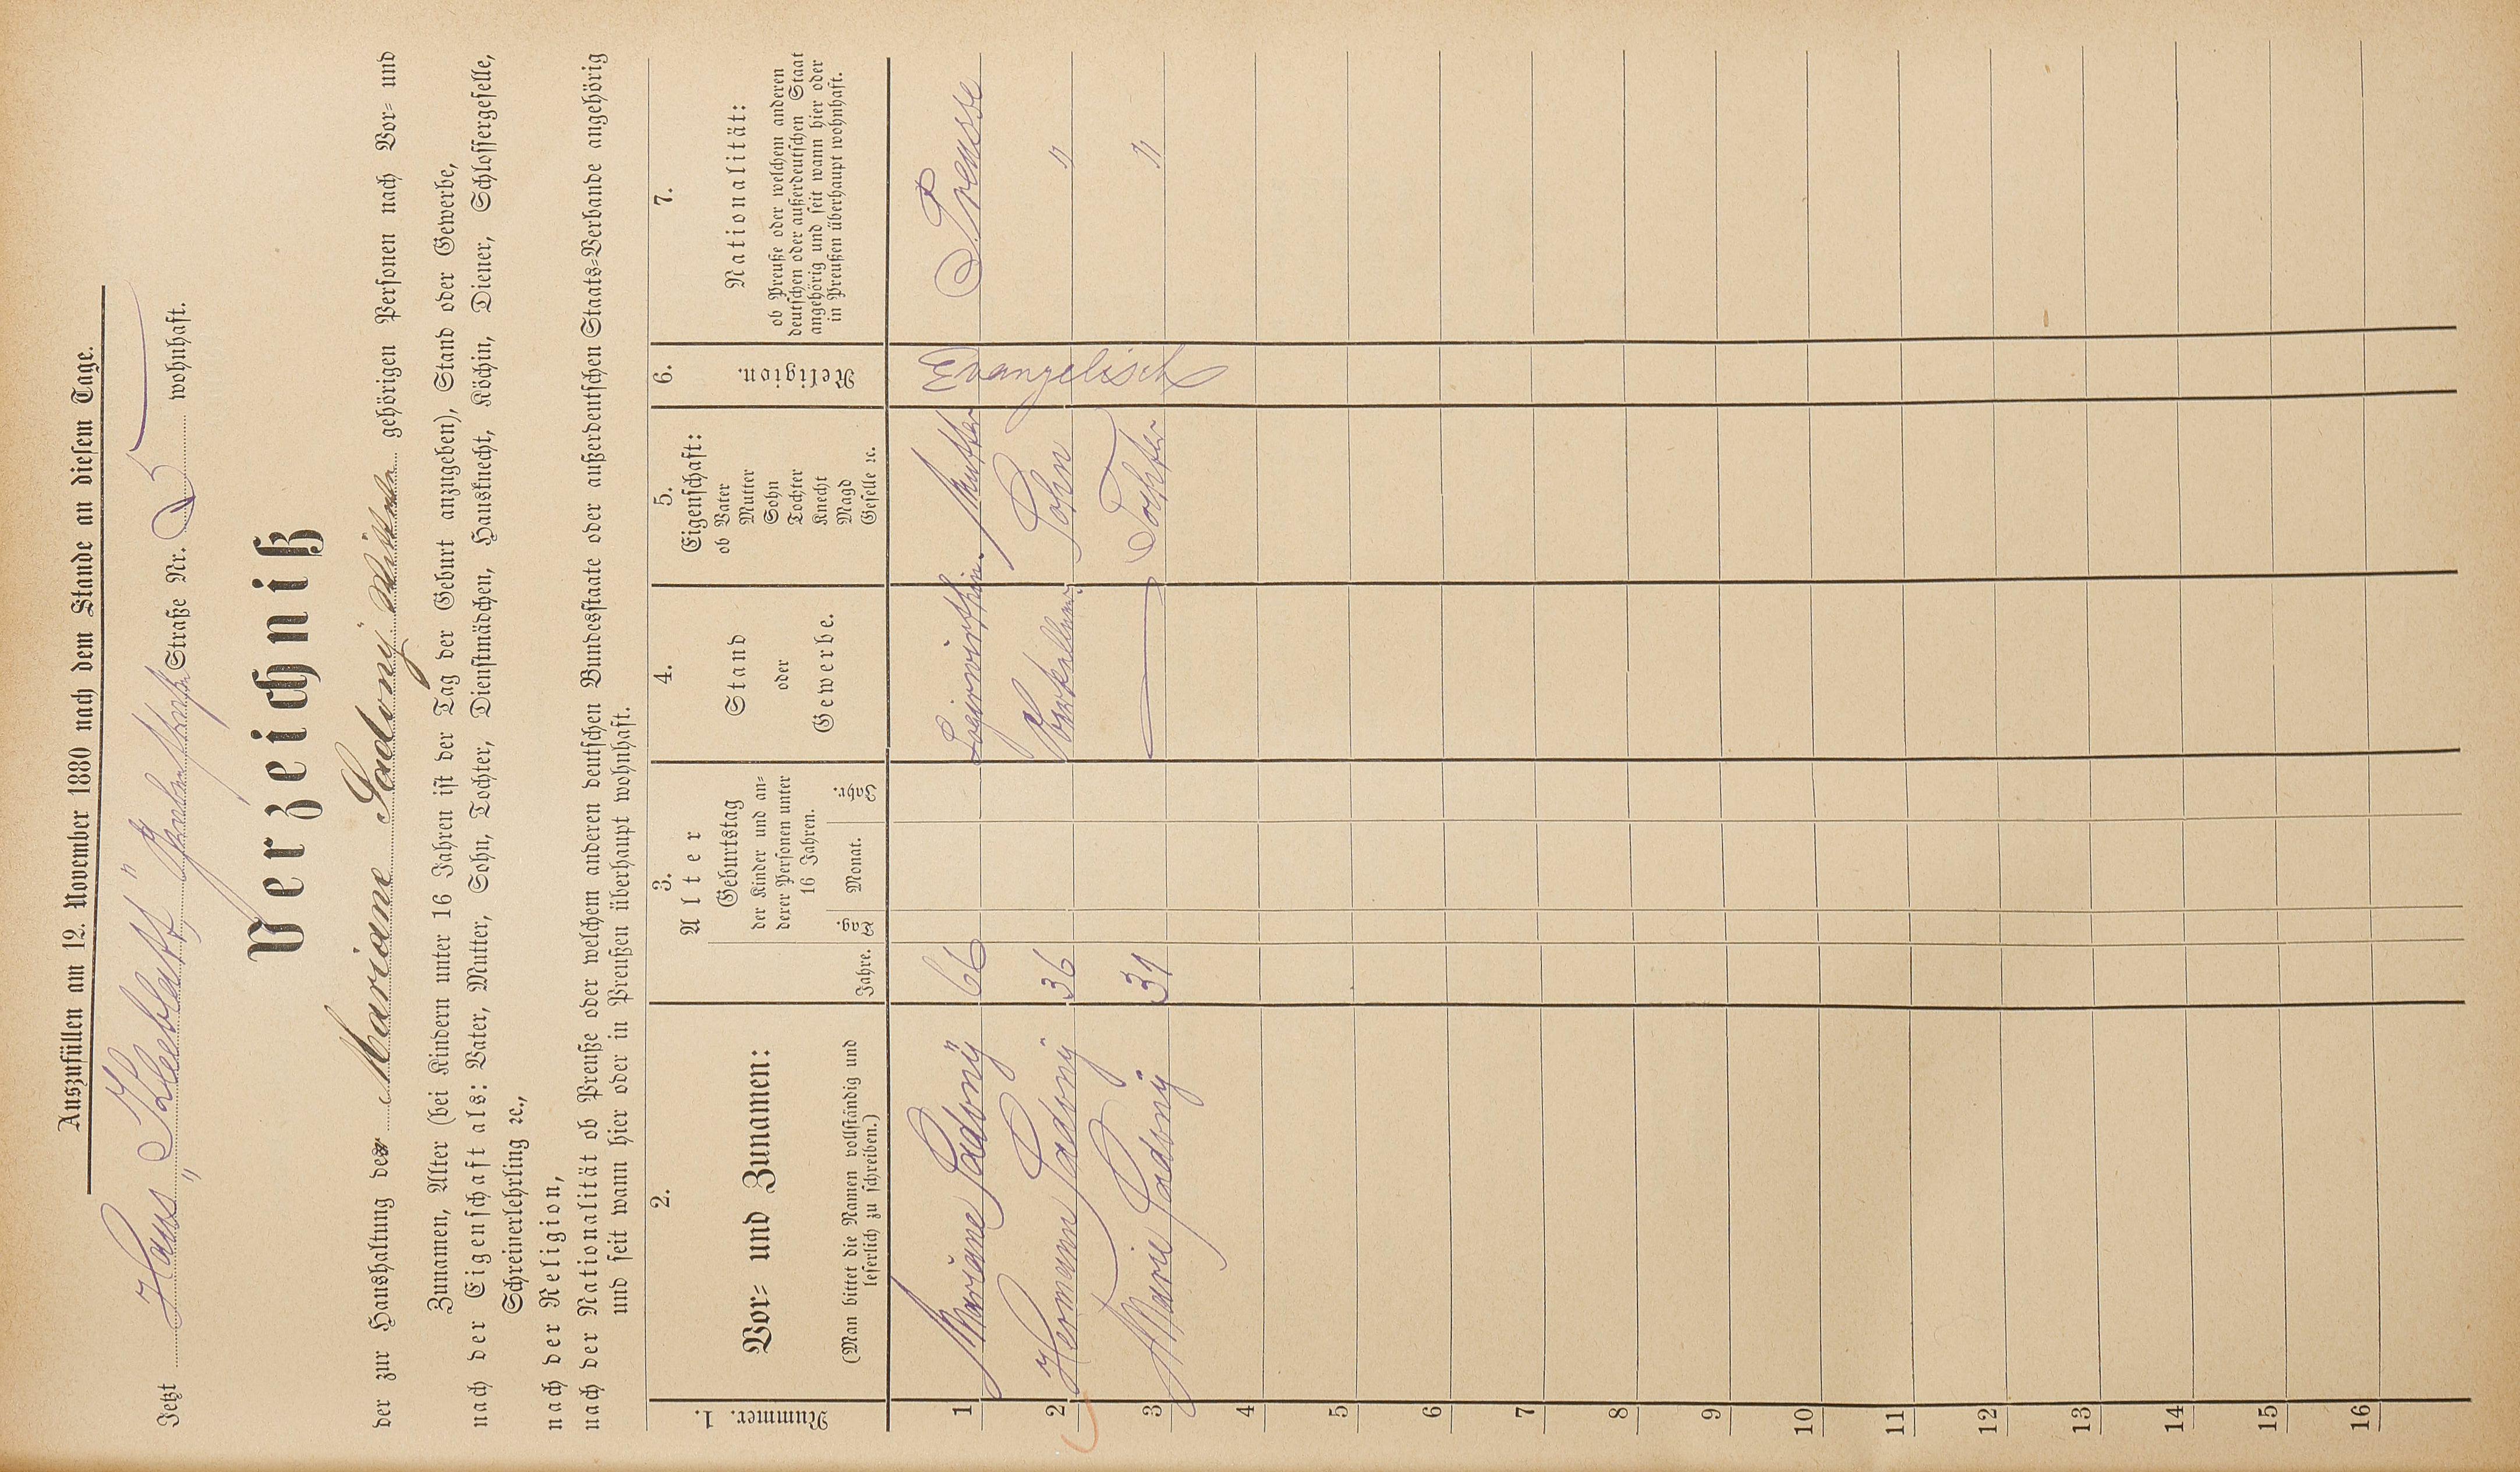 Auszufüllen am 12. November 1880 nach dem Stande an diesem Tage.
Jetzt Haus „Kleeblatt" Straße Nr. 5 wohnhaft.
Verzeichniß
der zur Haushaltung der Mariane Sadony Wittwe gehörigen Personen nach Vor- und
Zunamen, Alter (bei Kindern unter 16 Jahren ist der Tag der Geburt anzugeben), Stand oder Gewerbe,
nach der Eigenschaft als: Vater, Mutter, Sohn, Tochter, Dienstmädchen, Hausknecht, Köchin, Diener, Schlossergeselle,
Schreinerlehrling ꝛc.,
nach der Religion,
nach der Nationalität ob Preuße oder welchem anderen deutschen Bundesstaate oder außerdeutschen Staats-Verbande angehörig
und seit wann hier oder in Preußen überhaupt wohnhaft.
1. Nummer.
2. Vor- und Zunamen:
(Man bittet die Namen vollständig und
leserlich zu schreiben.)
3. Alter
Jahre.
Geburtstag
der Kinder und an-
derer Personen unter
16 Jahren.
Tag. Monat. Jahr.
4. Stand
oder
Gewerbe.
5. Eigenschaft:
ob Vater
Mutter
Sohn
Tochter
Knecht
Magd
Geselle ꝛc.
6. Religion.
7. Nationalität:
ob Preuße oder welchem anderen
deutschen oder außerdeutschen Staat
angehörig und seit wann hier oder
in Preußen überhaupt wohnhaft.
1 Mariane Sadony 66 Logirwirthin Mutter Evangelisch Preusse
2 Hermann Sadony 36 Sohn "
3 Marie Sadony 31 — Tochter "
4
5
6
7
8
9
10
11
12
13
14
15
16